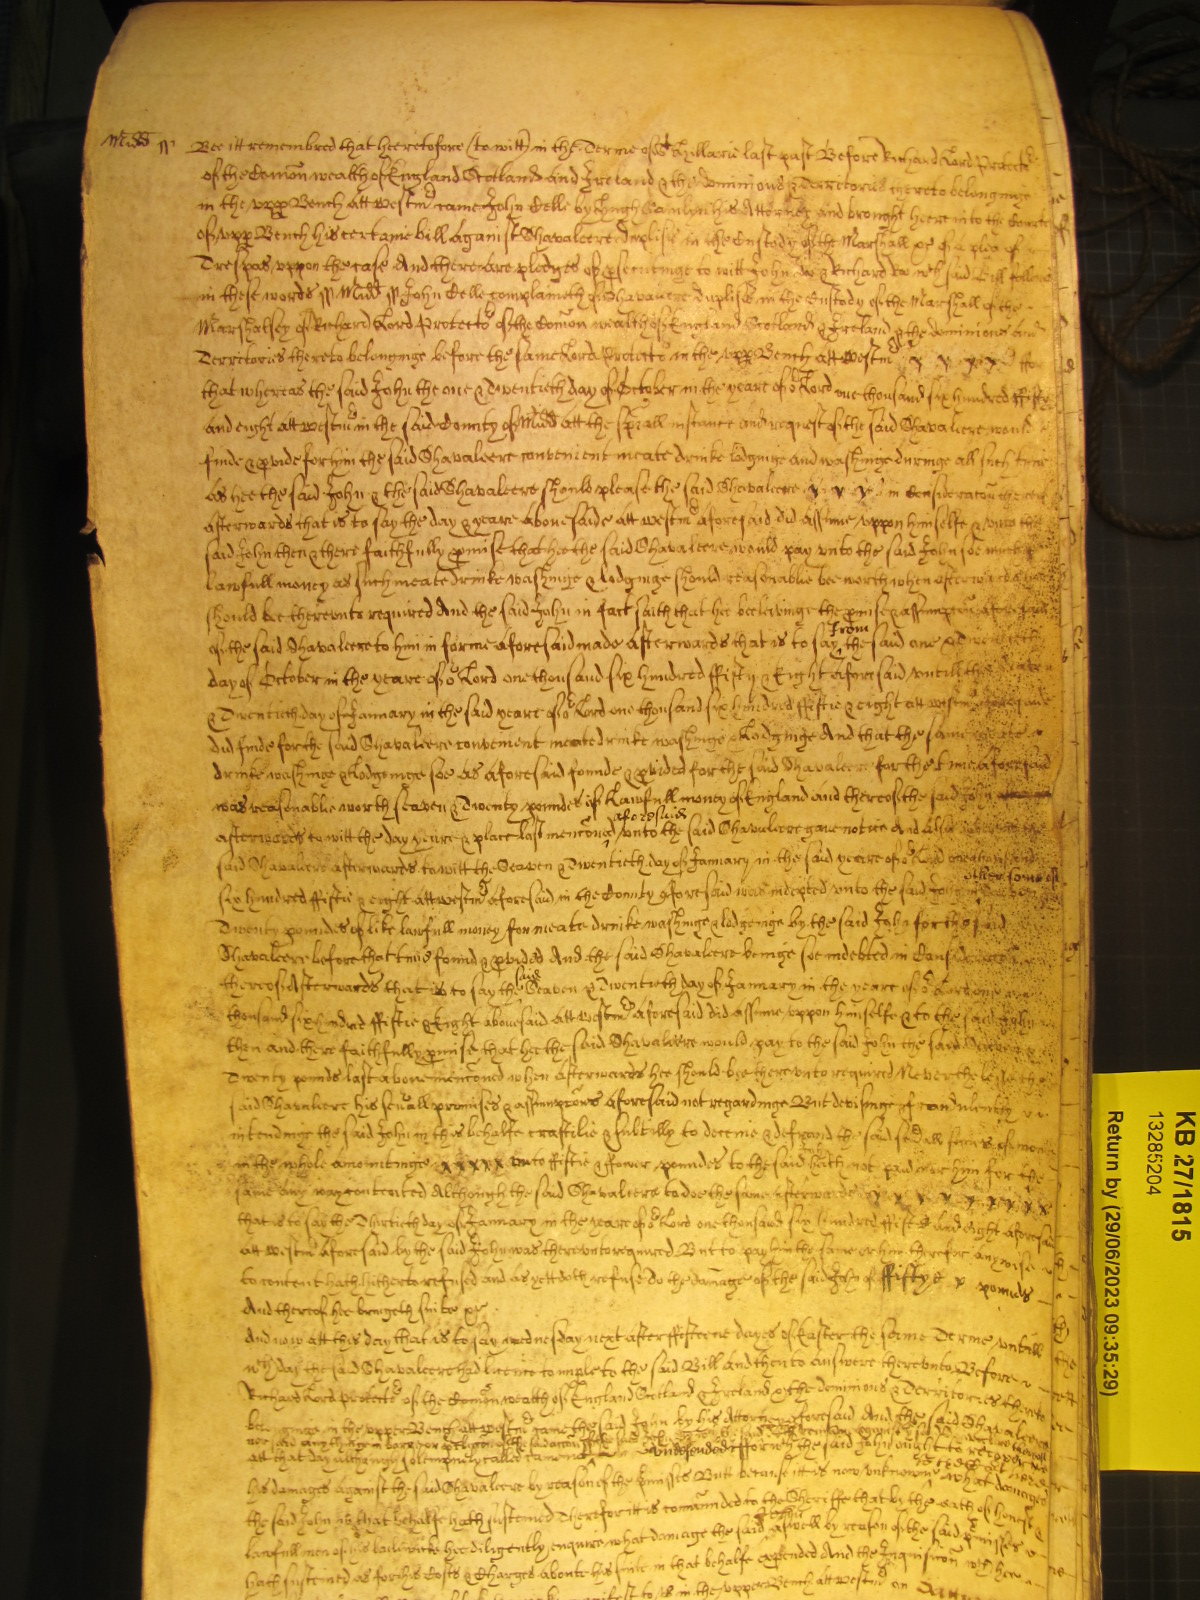 Midd ss Bee itt remembred that heeretofore (to witt) in the Terme of St Hillarie last past Before Richard Lord Protector
of the Comon wealth of England Scotland and Ireland & the dominions & Territories thereto belonginge
in the upp Bench att Westmr came John Celle by Hugh his Attorney and brought heere into the Court
of upp Bench his certaine bill against Shavaleere Duplisis in the Custody of the Marshall &c of a plea of
Trespas uppon the case And there are pledges of psecutinge to witt John Doe & Richard Roe wch said Bill followes
in these words ss Midd ss John Celle complaineth of Shavaleere Duplisis in the Custody of the Marshall of the
Marshalsey of Richard Lord Protector of the Comon wealth of England Scotland & Ireland & the dominions and
Territories thereto belonginge before the same Lord Protector in the upp Bench att Westmr x x x x x ffor
that whereas the said John the one & Twentieth day of October in the yeare of or Lord one thousand six hundred ffiftie
and eight att Westmr in the said County of Midd att the spiall instance and request of the said Shavaleere would
finde & pvide for him the said Shavaleere convenient meate drinke lodginge and washinge duringe all such time
as hee the said John & the said Shavaleere should please the said Shavaleere x x x in Consideracon thereof
afterwards that is to say the day & yeare abovesaide att Westmr aforesaid did assume uppon himselfe & unto the
said John then & there faithfully pmise that hee the said Shavaleere would pay unto the said John soe much
lawfull money as such meate drinke washinge & lodginge should reasonablie bee worth when afterwards hee
should bee thereunto required And the said John in fact saith that hee beeleivinge the pmise & assumption aforesaid
of the said Shavaleere to him in forme aforesaid made afterwards that is to say from the said one & Twentieth
day of October in the yeare of or Lord one thousand six hundred ffifty & Eight aforesaid untill the Seaven
& Twentieth day of January in the said yeare of or Lord one thousand six hundred ffiftie & eight att Westmr aforesaid
did finde for the said Shavaleere convenient meate drinke washinge & Lodginge And that the same meate
drinke washinge & Lodginge soe as aforesaid founde & pvided for the said Shavaleere for the time aforesaid
was reasonablie worth seaven & Twenty poundes of Lawfull money of England and thereof the said John
afterwards to witt the day yeare & place last menconed aforesaid unto the said Shavaleere gave notice And Also whereas the
said Shavaleere afterwards to witt the Seaven & Twentieth day of January in the said yeare of or Lord one thousand
six hundred ffiftie & eight att Westmr aforesaid in the County aforesaid was indepted unto the said John in other some of Seaven &
Twenty poundes of like lawfull money for meate drinke washinge & lodgeinge by the said John for the said
Shavaleere before that time found & pvided And the said Shavaleere beinge soe indebted in Consideracon
thereof Afterwards that is to say the said Seaven & Twentieth day of January in the yeare of or Lord one
thousand six hundred ffiftie & Eight abovesaid att Westmr aforesaid did assume uppon himselfe & to the said John
then and there faithfully pmise that hee the said Shavaleere would pay to the said John the said Seaven &
Twenty pounds last above menconed when afterwards hee should bee thereunto required Neverthelesse the
said Shavaleere his sevall promises & assumptions aforesaid not regardinge But devisinge & fraudulently
intendinge the said John in this behalfe craftilie & subtilly to deceive & defraud the said sevall sumes of money
in the whole amountinge xxxxx unto ffiftie & ffower poundes to the said John hath not paid or him for the
same any way contented Although the said Shavaleere to doe the same afterwards x x x x x x x
that is to say the Thirtieth day of January in the yeare of or Lord one thousand six hundred ffiftie and eight aforesaid
att Westmr aforesaid by the said John was thereunto required But to pay him the same or him therefor anywise
to content hath hitherto refused and as yett doth refuse to the damage of the said John of ffifty x pounds
And thereof hee bringeth suite &c
And now att this day that is to say wednesday next after ffifteene dayes of Easter the same Terme untill
wch day the said Shavaleere had licence to imple to the said Bill And then to answere thereunto Before
Richard Lord Protector of the Comon wealth of England Scotland & Ireland & the dominions & Territories thereto
beelonginge in the upper Bench att Westmr came the said John by his Attorney aforesaid And the said Shavaleere
att that day although solempnely called came not
undefended ffor wch the said John ought to recover
his damages against the said Shavaleere by reason of the pmisses But because itt is now unknown what damages
the said John in that behalfe hath susteined Therefore itt is comaunded to the Sheriffe that by the oath of honest &
lawfull men of his bailiwicke hee diligently enquire what damage the said John aswell by reason of the said pmisses
hath susteined as for his Costs & Charges about his suite in that behalfe expended And the Inquisition wch hee
to us in the upper Bench att Westmr on
KB 27/1815
13285204
Return by (29/06/2023 09:35:29)